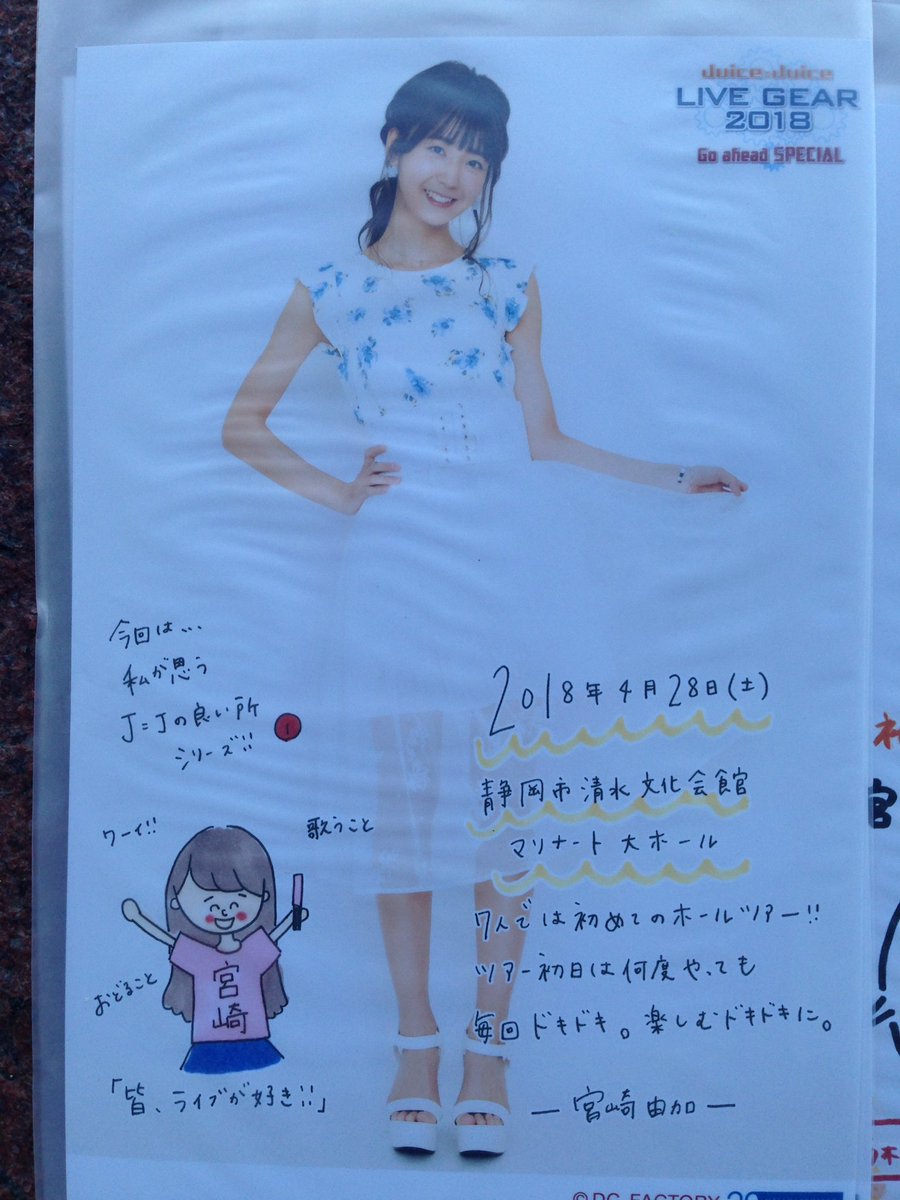 Juice=Juice
LIVE GEAR
2018
Go ahead SPECIAL
今回は...
私が思う
J=Jの良い所
シリーズ!!
1
ワーイ!!
歌うこと
おどること
宮崎
「皆、ライブが好き!!」
2018年4月28日(土)
静岡市清水文化会館
マリナート 大ホール
7人では初めてのホールツアー!!
ツアー初日は何度やっても
毎回ドキドキ。楽しむドキドキに。
ー宮崎由加ー
©DC FACTORY